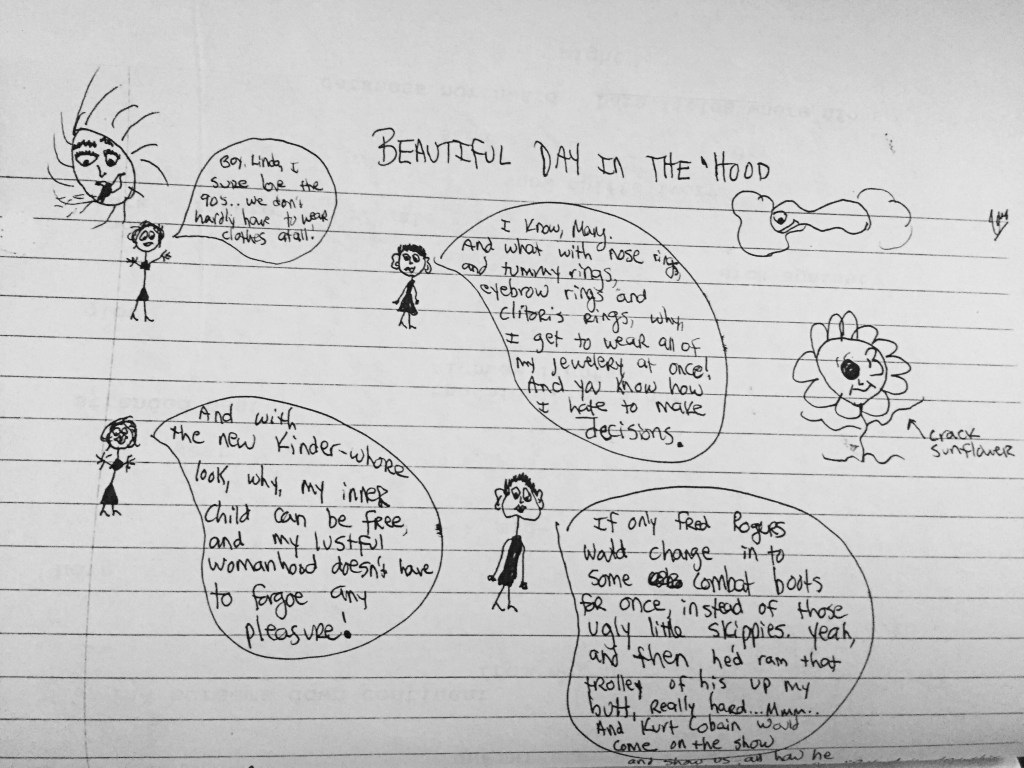 BEAUTIFUL DAY IN THE 'HOOD
Boy, Linda, I
sure love the
90's.. we don't
hardly have to wear
clothes at all!
I know, Mary.
And what with nose rings
and tummy rings,
eyebrow rings and
clitoris rings, why,
I get to wear all of
my jewelery at once!
And you know how
I hate to make
decisions.
crack
sunflower
And with
the new Kinder-whore
look, why, my inner
child can be free,
and my lustful
womanhood doesn't have
to forgoe any
pleasure!
If only Fred Rogers
would change in to
some combat boots
for once, instead of those
ugly little skippies. Yeah,
and then he'd ram that
trolley of his up my
butt, really hard...Mmm..
And Kurt Cobain would
come on the show
and show us all how he